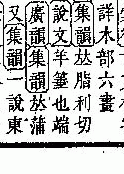 詳木部六畫
集韻𠀤脂利切
說文羊箠也端
廣韻集韻𠀤蒲
又集韻一說東